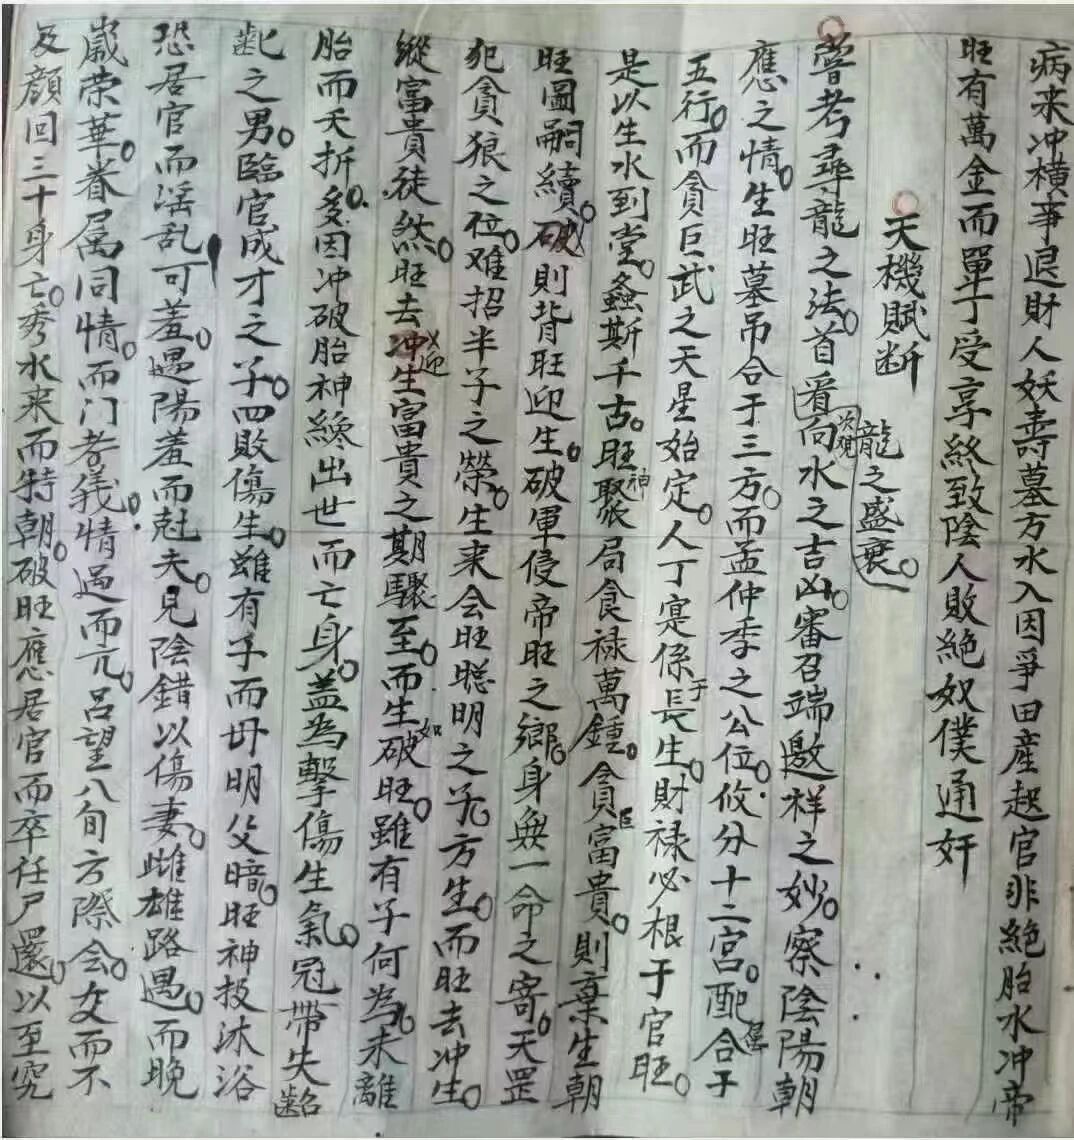 病来冲横事退財人妖壽墓方水入因爭田産起官非絶胎水冲帝
旺有萬金而單丁受享終致陰人敗絶奴僕通奸
天機賦断
龍之盛衰。
嘗考尋龍之法。首看次观向水之吉凶。審召端邀祥之妙。察陰陽朝
應之情。生旺墓吊合于三方。而孟仲季之公位。攸分十二宫。配合于
五行。而貪巨武之天星始定。人丁寔係于長生。財禄必根于官旺。
是以生水到堂。螽斯千古。旺神聚局食禄萬鍾。貪巨富貴。則棄生朝
旺圖嗣續。破則背旺迎生。破軍侵帝旺之鄉。身無一命之寄。天罡
犯貪狼之位。难招半子之榮。生来会旺聪明之子方生。而旺去冲生。
縱富貴徒然。旺去冲迎生富貴之期驟至。而生如破旺。雖有子何為。未離
胎而夭折多。因冲破胎神纔出世而亡身。盖為擊傷生氣。冠帶失
齔之男。臨官成才之子。四敗傷生。雖有子而毋明父暗。旺神投沐浴
恐居官而滛乱可羞。遇陽羞而尅夫。見陰錯以傷妻。雌雄路遇。而晚
嵗荣華。眷属同情。而门孝義情過而亢。呂望八旬方際会。交而不
及顔回三十身亡。秀水来而特朝。破旺應居官而卒任户還。以至究